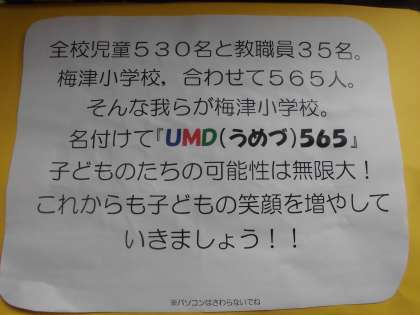 全校児童５３０名と教職員３５名。
梅津小学校，合わせて５６５人。
そんな我らが梅津小学校。
名付けて『UMD(うめづ)565』
子どものたちの可能性は無限大！
これからも子どもの笑顔を増やして
いきましょう！！
※パソコンはさわらないでね